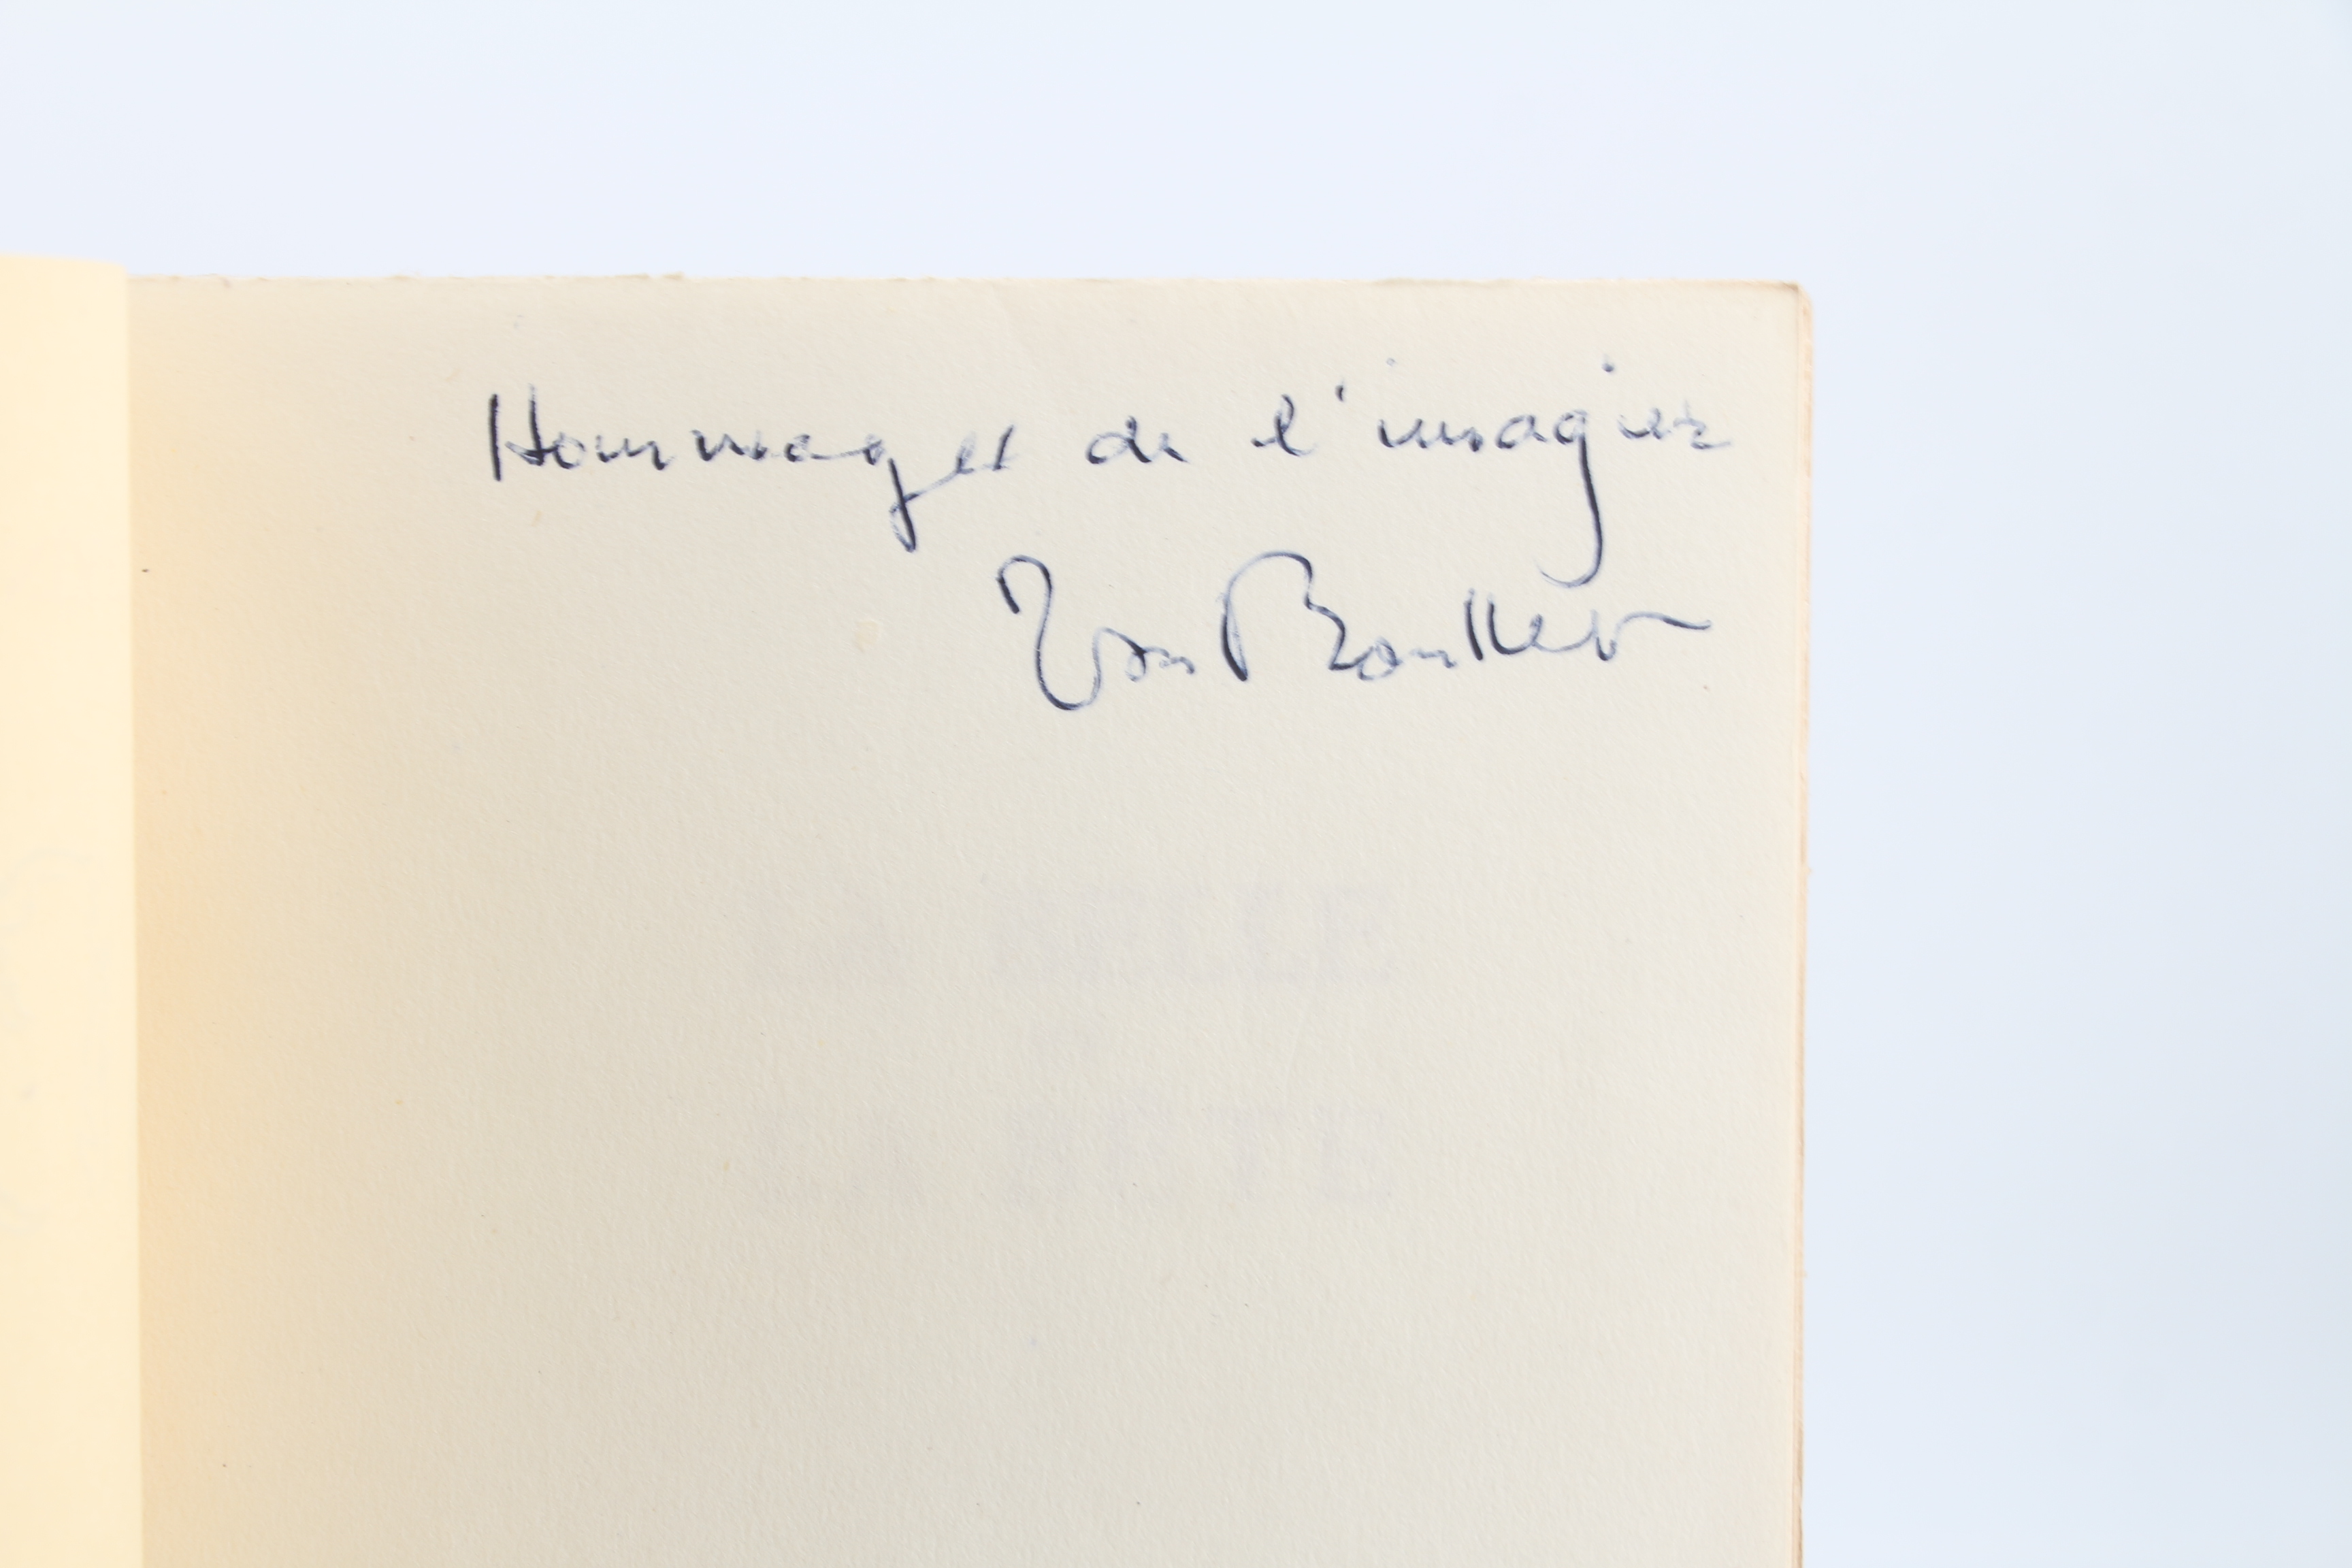 Hommages de l'imagier
Jean Boullet